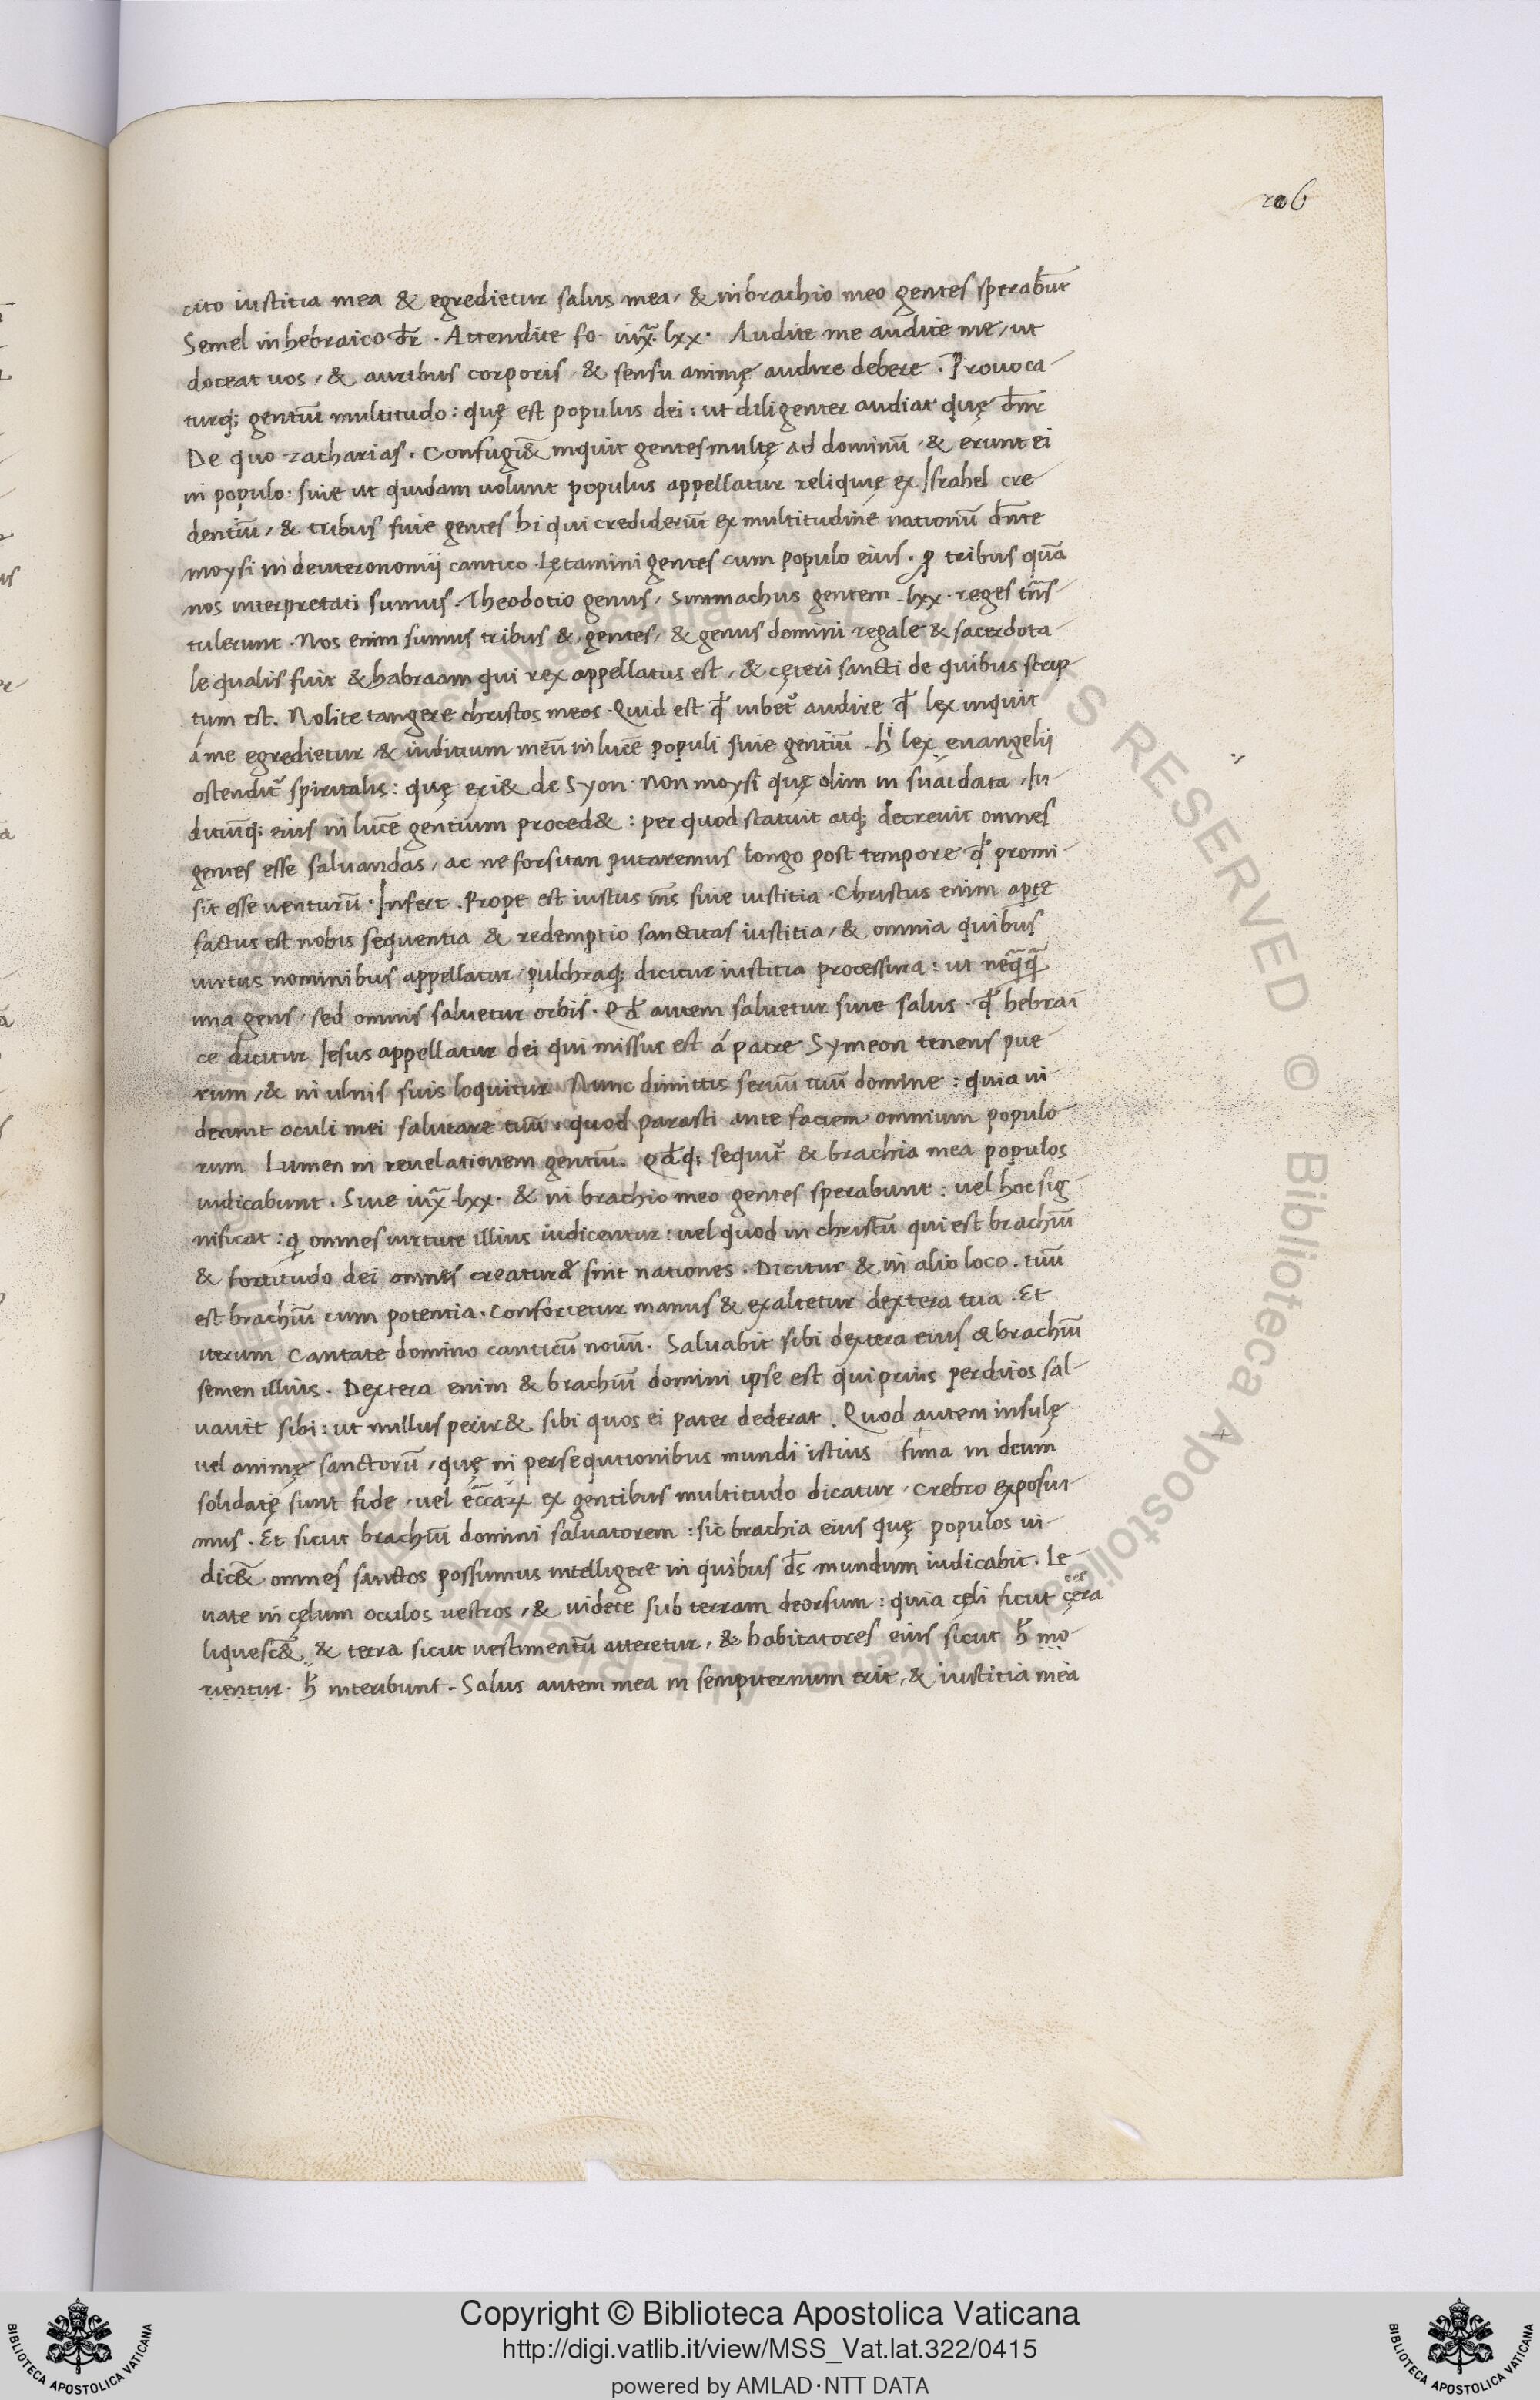 206
cito iustitia mea & egredietur salus mea, & in brachio meo gentes sperabūt
Semel in hebraico dr̄. Attendite fo. iux̄. lxx. Audite me audite me, ut
doceat uos, & auribus corporis, & sensu animę audire debere. Prouoca-
turq; gentiū multitudo: quę est populus dei: ut diligenter audiat quę dn̄r
De quo zacharias. Confugi&̄ inquit gentes multę ad dominū & erunt ei
in populo: siue ut quidam uolunt populus appellatur reliquię ex Israhel cre-
dentiū, & tribus siue gentes hi qui crediderūt ex multitudine nationū dn̄te
moysi in deuteronomij cantico. Lętamini gentes cum populo eius. ꝓ tribus quā
nos interpretati sumus. Theodotio genus, Simmachus gentem. lxx. reges trn̄s-
tulerunt. Nos enim sumus tribus & gentes, & genus domini regale & sacerdota-
le qualis fuit & habraam qui rex appellatus est, & cęteri sancti de quibus scrip-
tum est. Nolite tangere christos meos. Quid est qđ iubet᷑ audire qđ lex inquit
á me egredietur & iuditium meū in lucē populi siue gentiū. hͥ lex euangelij
ostendit᷑ spiritalis: quę exi& de Syon. Non moysi quę olim in suai data. Iu-
ditiūq; eius in lucē gentium proced&: per quod statuit atq; decreuit omnes
gentes esse saluandas, ac ne forsitan putaremus longo post tempore qđ promi-
sit esse uenturū. Infert. Prope est iustus mīs siue iustitia. Christus enim apte
factus est nobis sequentia & redemptio sanctitas iustitia, & omnia quibus
uirtus nominibus appellatur, pulchraq; dicitur iustitia processura: ut neq̄q̄
una gens, sed omnis saluetur orbis. Qđ autem saluetur siue salus. qđ hebrai
ce dicitur Iesus appellatur dei qui missus est á patre. Symeon tenens pue-
rum, & in ulnis suis loquitur. Nunc dimittis seruū tuū domine: quia ui
derunt oculi mei salutare tuū: quod parasti ante faciem omnium populo-
rum Lumen in reuelationem gentiū. Qđq; sequit᷑ & brachia mea populos
iudicabunt. Siue iux̄. lxx. & in brachio meo gentes sperabunt: uel hoc sig-
nificat: ꝙ omnes uirtute illius iudicentur: uel quod in christū qui est brachiū
& fortitudo dei omnes creaturę sint nationes. Dicitur & in alio loco. tuū
est brachiū cum potentia. Confortetur manus & exaltetur dextera tua. Et
iterum Cantate domino canticū nouū. Saluabit sibi dextera eius & brachiū
semen illius. Dextera enim & brachiū domini ipse est qui prius perditos sal-
uauit sibi: ut nullus perir& sibi quos ei pater dederat. Quod autem insulę
uel animę sanctorū, quę in persequtionibus mundi istius fīma in deum
solidatę sunt fide, uel ecc̄aꝝ ex gentibus multitudo dicatur, crebro exposui-
mus. Et sicut brachiū domini saluatorem: sic brachia eius quę populos iu-
dic&̄ omnes sanctos possumus intelligere in quibus ds̄ mundum iudicabit. Le-
uate in cęlum oculos uestros, & uidete sub terram deorsum: quia cęli sicut cęra
liquesc&̄ & terra sicut uestimentū atteretur, & habitatores eius sicut h̄ mo-
rientur. h̄ interibunt. Salus autem mea in sempiternum erit, & iustitia mea
ALL RIGHTS RESERVED © Biblioteca Apostolica Vaticana
Copyright © Biblioteca Apostolica Vaticana
http://digi.vatlib.it/view/MSS_Vat.lat.322/0415
powered by AMLAD·NTT DATA
BIBLIOTECA APOSTOLICA VATICANA
BIBLIOTECA APOSTOLICA VATICANA